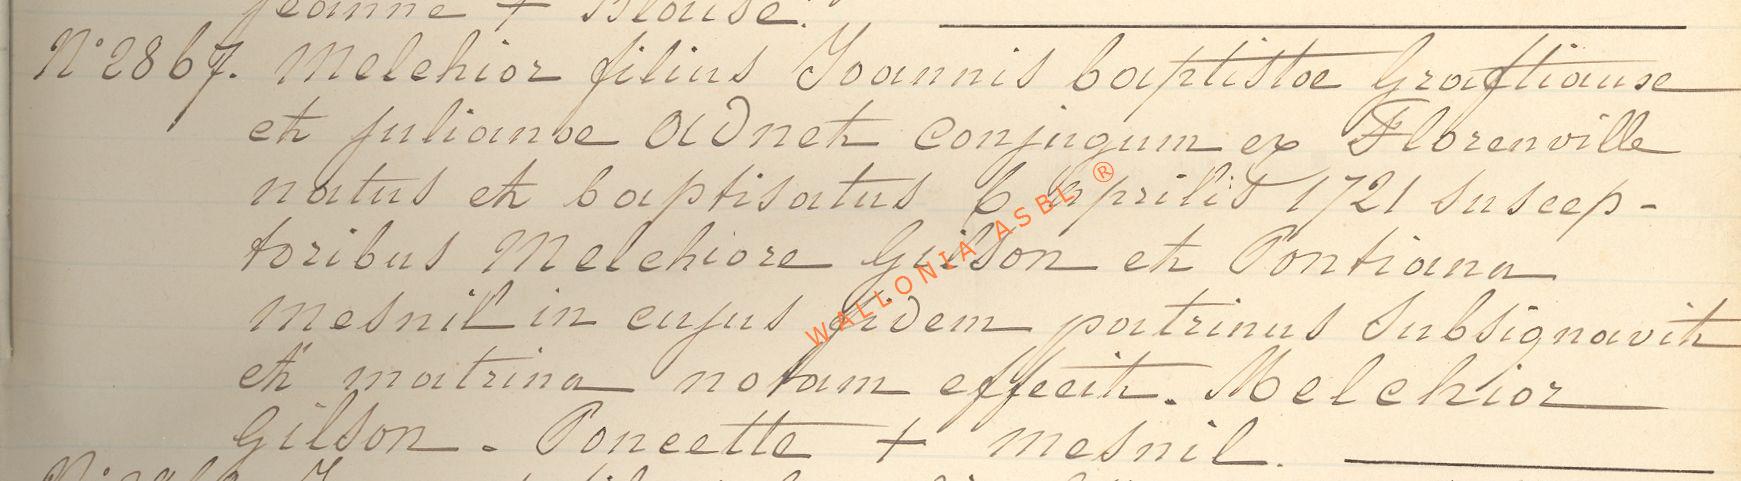 Jeanne + Blaise.
N° 2867. Melchior filius Joannis baptistae Graftiause
et julianae Adnet conjugum ex Florenville
natus et baptisatus 6 aprilis 1721 suscep-
toribus Melchiore Gilson et Pontiana
mesnil in cujus fidem patrinus subsignavit
et matrina notam effecit. Melchior
Gilson. Poncette + mesnil.
WALLONIA ASBL ®